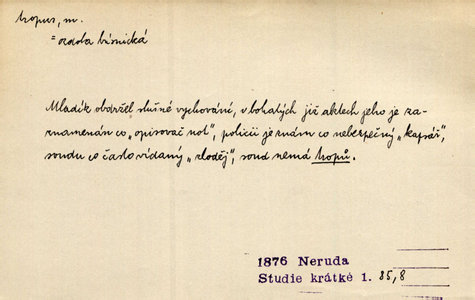 tropus, m.
= ozdoba básnická
Mladík obdržel slušné vychování, v bohatých již aktech jeho je za-
znamenán co „opisovač not“, policii je znám co nebezpečný „kapsář“,
soudu co často vídaný „zloděj“, soud nemá tropů.
1876 Neruda
Studie krátké 1. 85,8